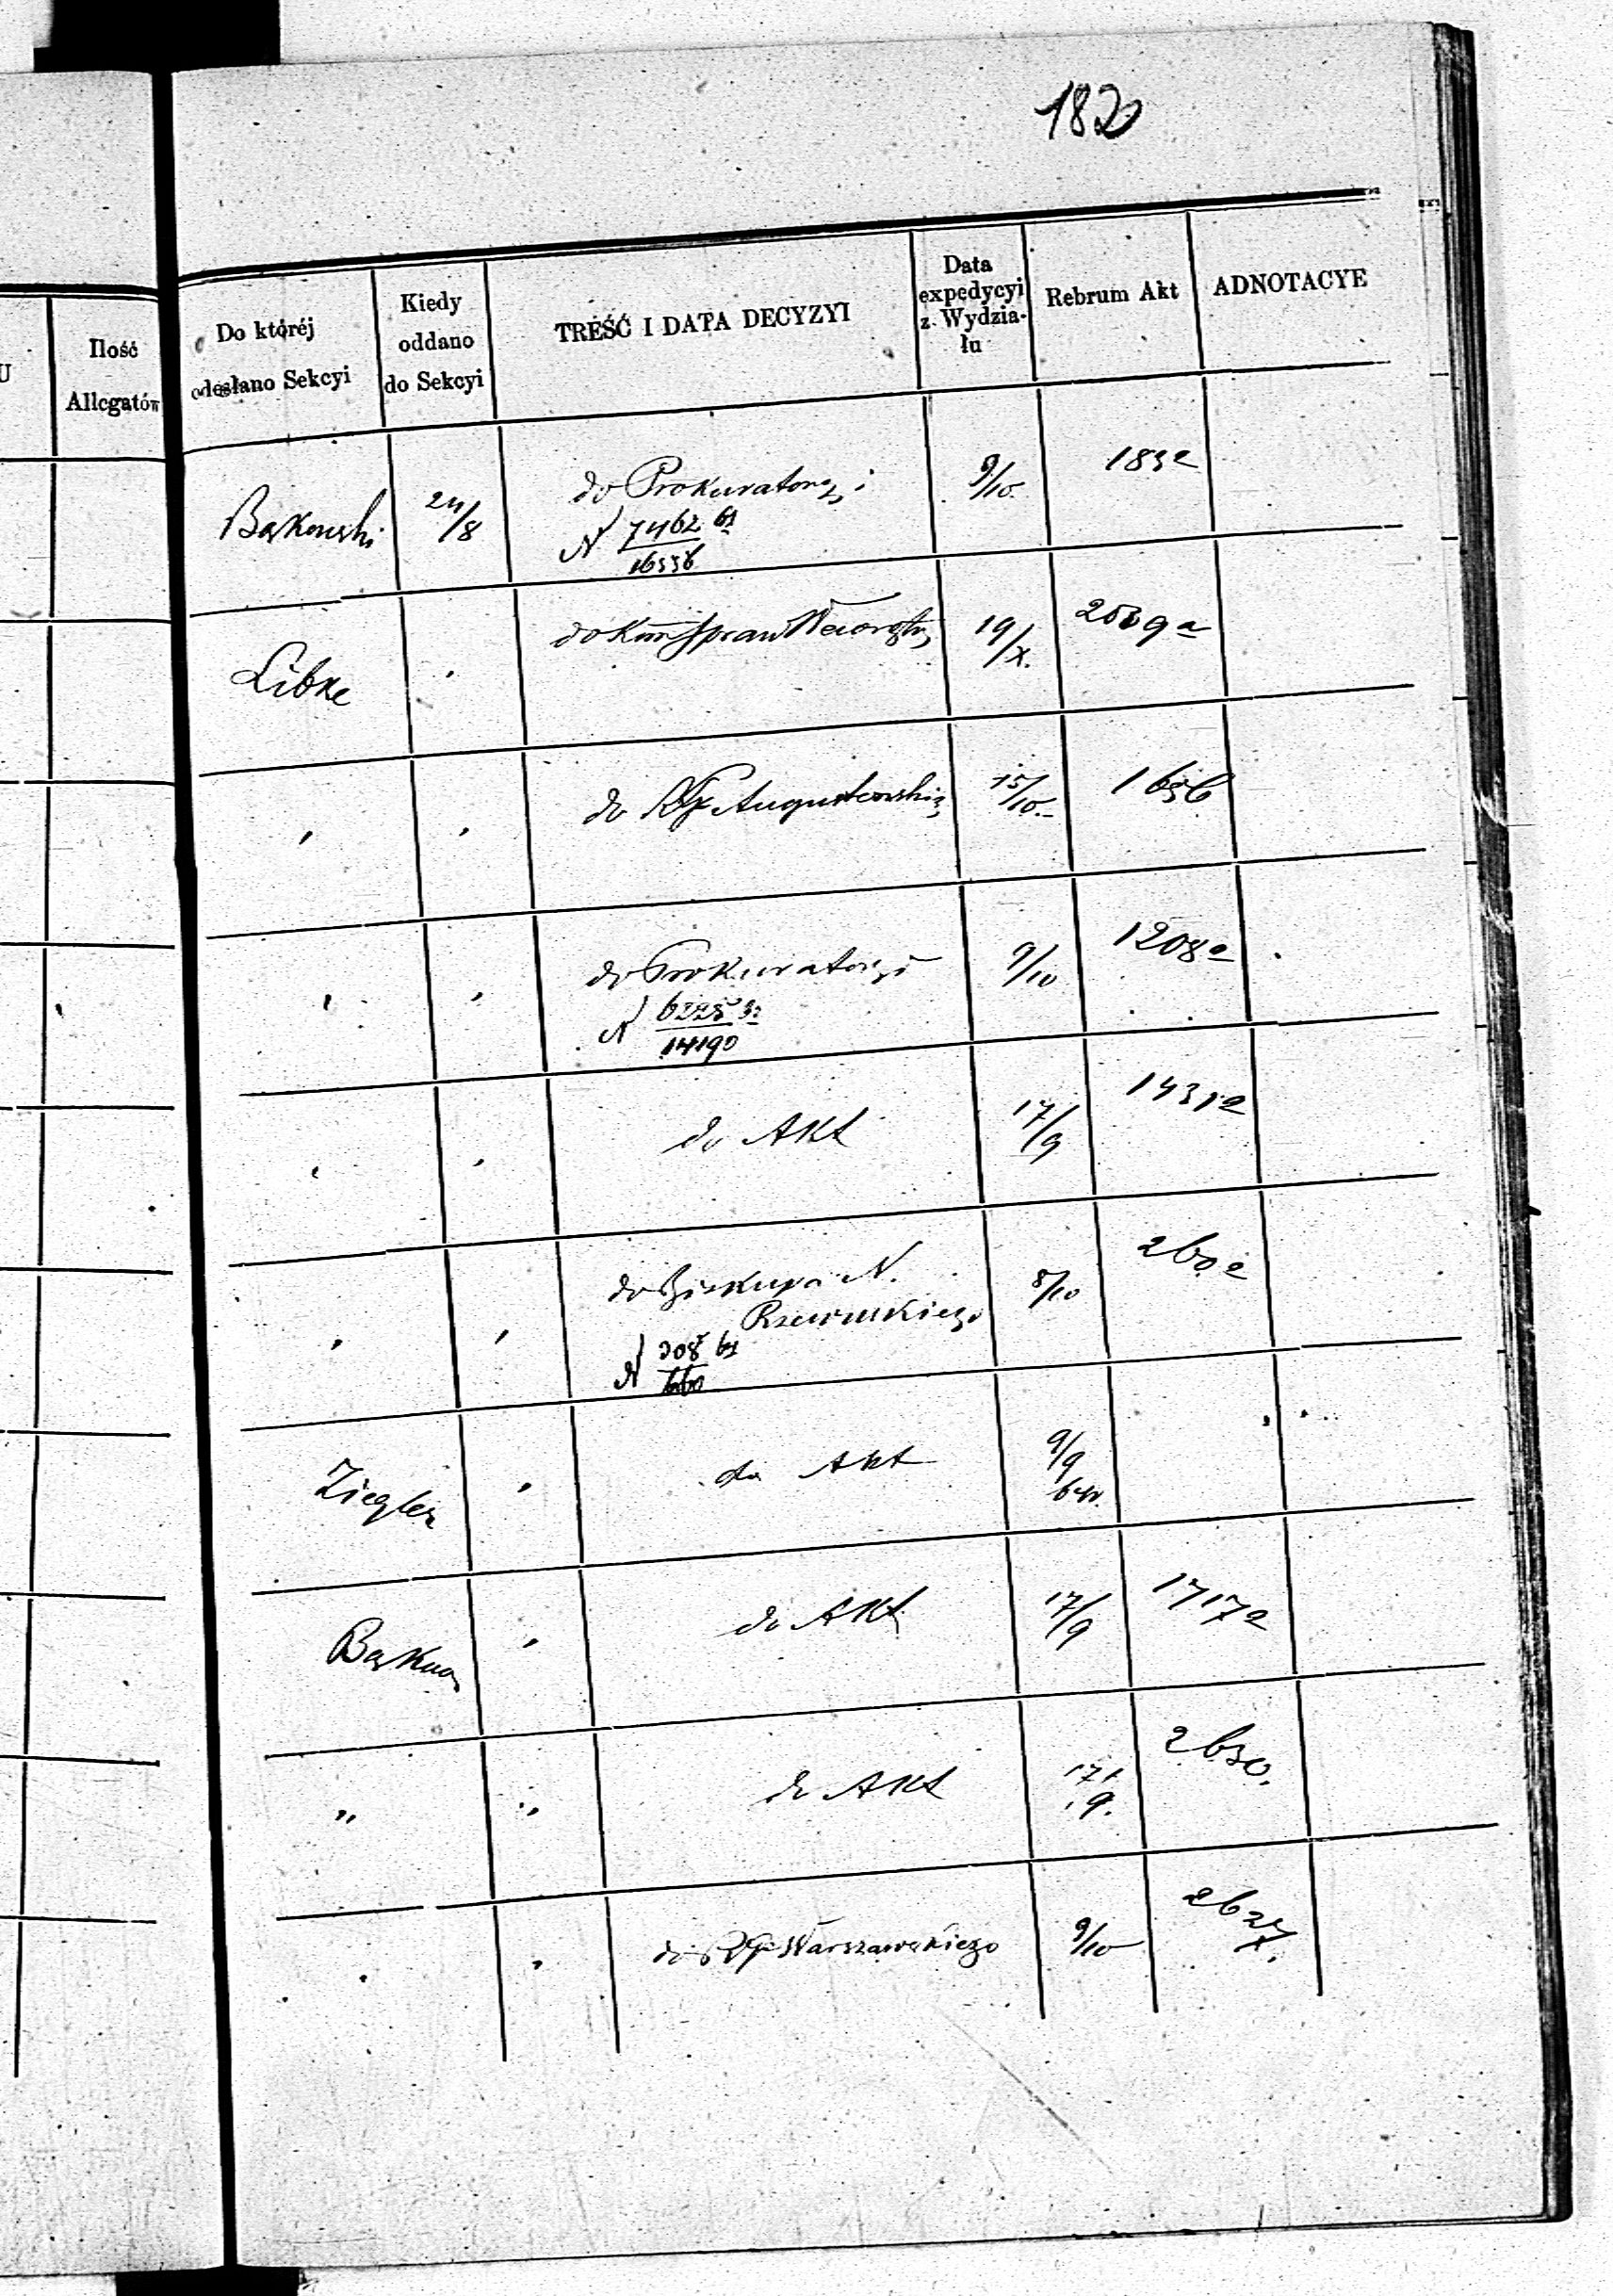 182
U
Ilość
Allegatów
Do któréj
odesłano Sekcyi
Kiedy
oddano
do Sekcyi
TREŚĆ I DATA DECYZYI
Data
expedycyi
z Wydzia-
łu
Rebrum Akt
ADNOTACYE
Bąkowski
24/8
do Prokuratoryi
N 7462
9/10
183a
Libke
do Kom Spraw
19/X.
do Augustowskie
15/10
do Prokuratoryi
N
14190
9/10
1208a
do Akt
17/9
1431a
do Biskupa N.
Rzewuskiego
N 308
8/10
260a
Ziegler
do Akt
9/9
do Akt
17/9
1717a
do Akt
17/9.
2630.
do RG Warszawskiego
9/10